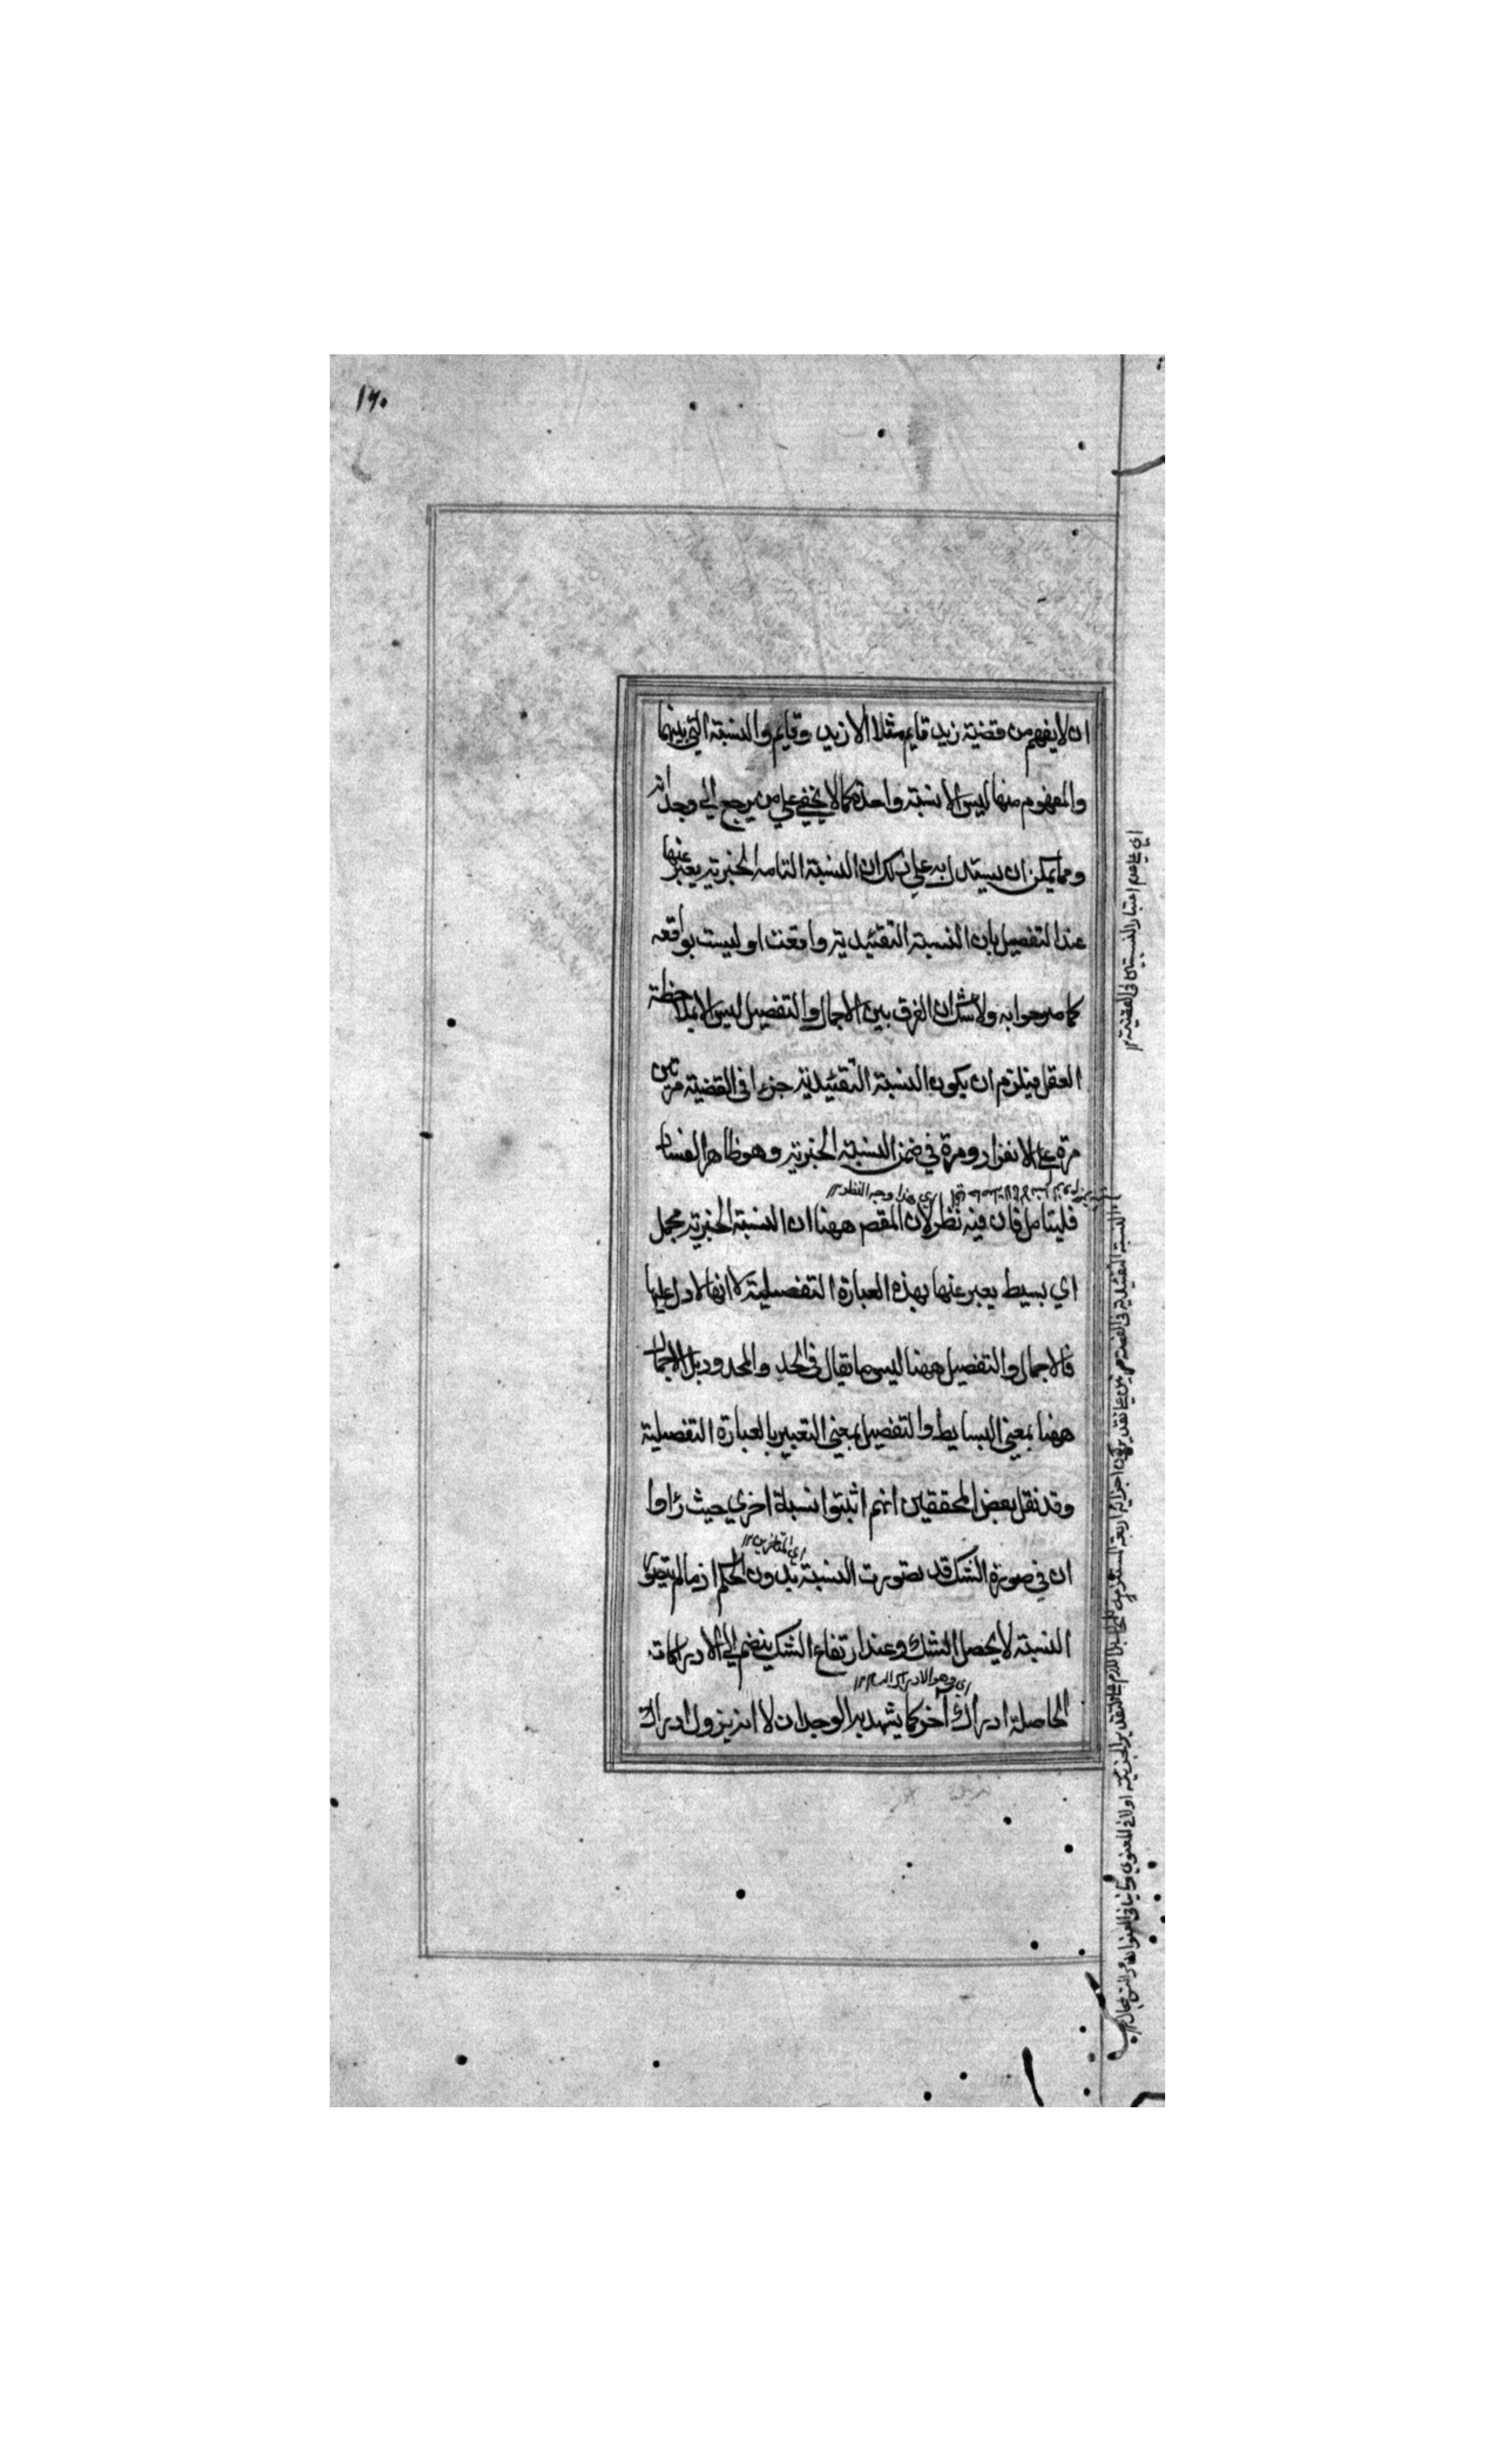 ١٦٠
ان لا يفهم من قضية زيد قايم مثلا الا زيد وقايم والنسبة التي بينهما
والمفهوم منها ليس الا نسبة واحدة كما لا يخفي علي من يرجع الي وجدانه
ومما يمكن ان يستدل به علي ذلك ان النسبة التامه الخبرية يعبر عنها
عند التفصيل بان النسبة التقئيدية واقعة او ليست بواقعه
كما صرحوا به ولا شك ان الفرق بين الاجمال والتفصيل ليس الا بملاحظة
العقل فيلزم ان يكون النسبة التقئيدية جزءا في القضية مرتين
مرة علي الانفراد ومرة في ضمن النسبة الخبرية وهو ظاهر الفساد
اي هذا وجه النظر ١٢
فليتامل فان فيه نظر لان المقص ههنا ان النسبة الخبرية مجمل
اي بسيط يعبر عنها بهذه العبارة التفصيلية لا انها لا دل عليها
فالاجمال والتفصيل ههنا ليس ما يقال في الحد والمحدود بل الاجمال
ههنا بمعني البسايط والتفصيل بمعني التعبير بالعبارة التفصيلية
وقد نقل بعض المحققين انهم اثبتوا نسبة اخري حيث رٔاوا
اي المتاخرين ١٢
ان في صورة الشك قد تصورت النسبة بدون الحكم اذ ما لم يتصور
النسبة لا يحصل الشك وعند ارتفاع الشك ينضم الي الادراكات
اي وهو الادراك
الحاصلة ادراك آخر كما يشهد به الوجدان لا انه يزول ادراك
اي علي عدم اعتبار النسبتين في القضية ١٢
النسبة التقئيدية في القضية مرتين علي تقدير كون اجزائه اربعة اولا في المعنون وثانيا في العنوان